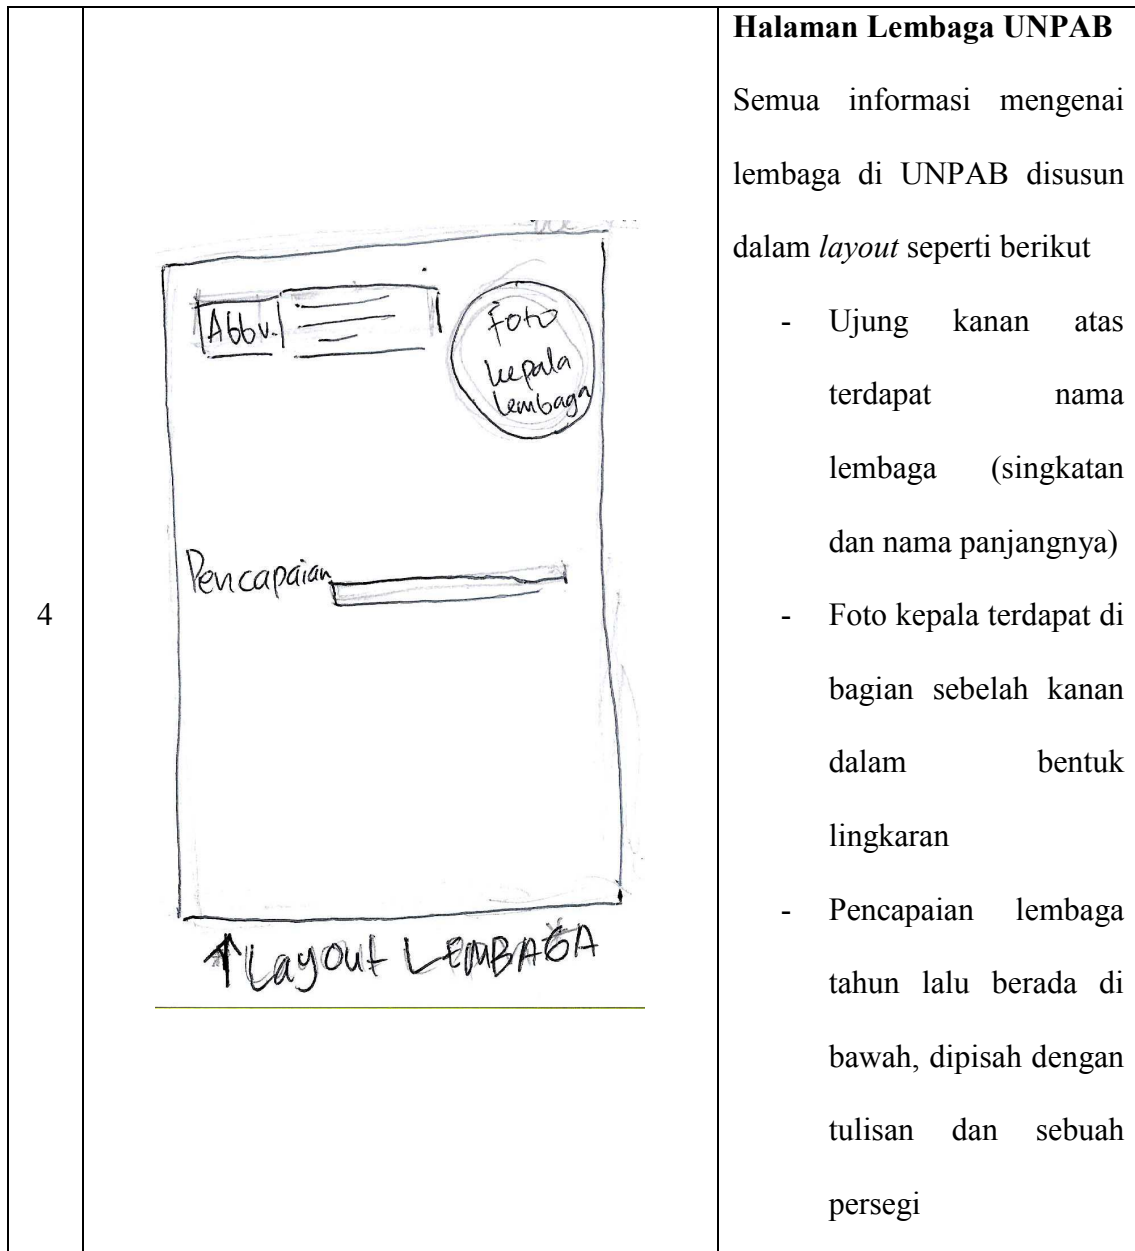 4
Abbv.
Foto
kepala
lembaga
Pencapaian
Layout LEMBAGA
Halaman Lembaga UNPAB
Semua informasi mengenai
lembaga di UNPAB disusun
dalam layout seperti berikut
- Ujung kanan atas
terdapat nama
lembaga (singkatan
dan nama panjangnya)
- Foto kepala terdapat di
bagian sebelah kanan
dalam bentuk
lingkaran
- Pencapaian lembaga
tahun lalu berada di
bawah, dipisah dengan
tulisan dan sebuah
persegi